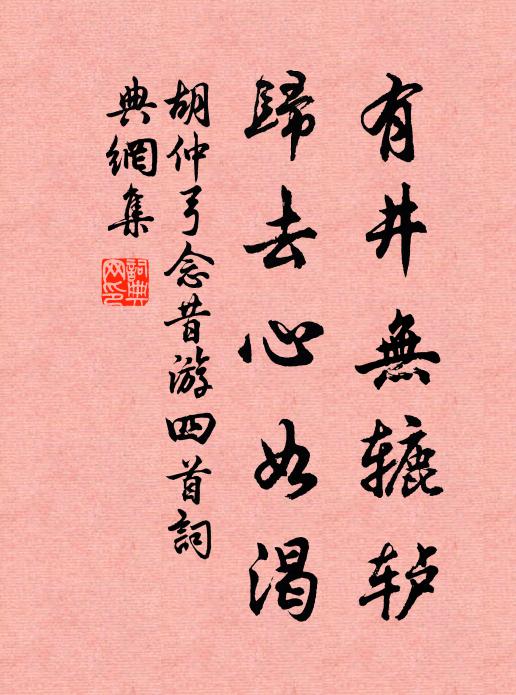 有井無辘轳
歸去心如渴
胡仲弓念昔游四首詞
典網集
詞典
网印